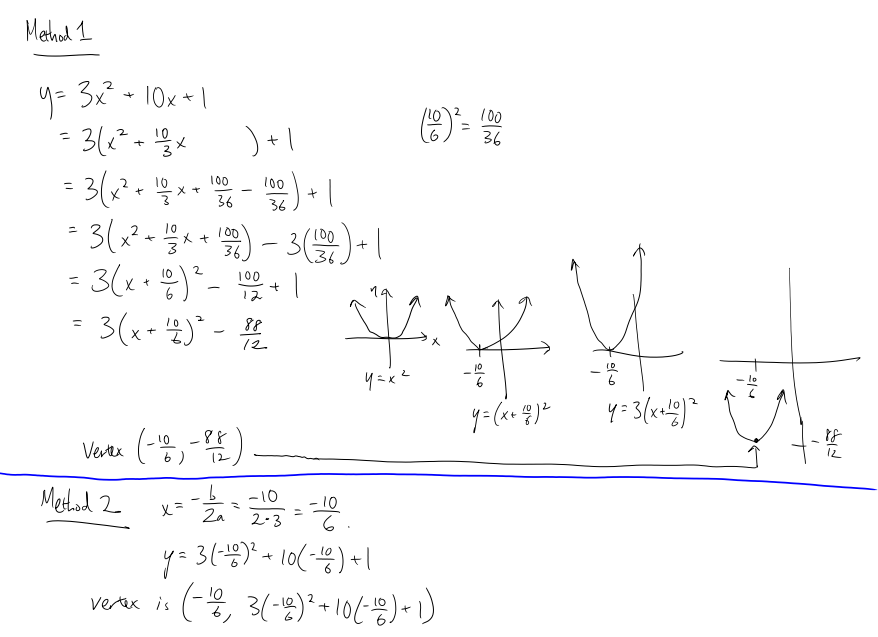 Method 1
y = 3x² + 10x + 1
= 3(x² + 10/3 x      ) + 1
(10/6)² = 100/36
= 3(x² + 10/3 x + 100/36 - 100/36) + 1
= 3(x² + 10/3 x + 100/36) - 3(100/36) + 1
= 3(x + 10/6)² - 100/12 + 1
= 3(x + 10/6)² - 88/12
x
y = x²
-10/6
y = (x + 10/6)²
-10/6
y = 3(x + 10/6)²
-10/6
-88/12
Vertex (-10/6, -88/12)
Method 2
x = -b/2a = -10/2·3 = -10/6.
y = 3(-10/6)² + 10(-10/6) + 1
vertex is (-10/6, 3(-10/6)² + 10(-10/6) + 1)